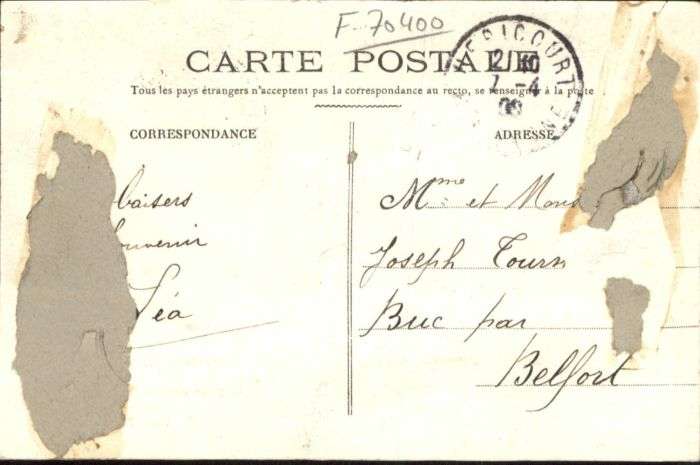 F. 70400
CARTE POSTALE
Tous les pays étrangers n'acceptent pas la correspondance au recto, se renseigner à la poste
ERICOURT
7 -4
CORRESPONDANCE
ADRESSE
baisers
Souvenir
Léa
Mme et Mons
Joseph Tourn
Buc par
Belfort